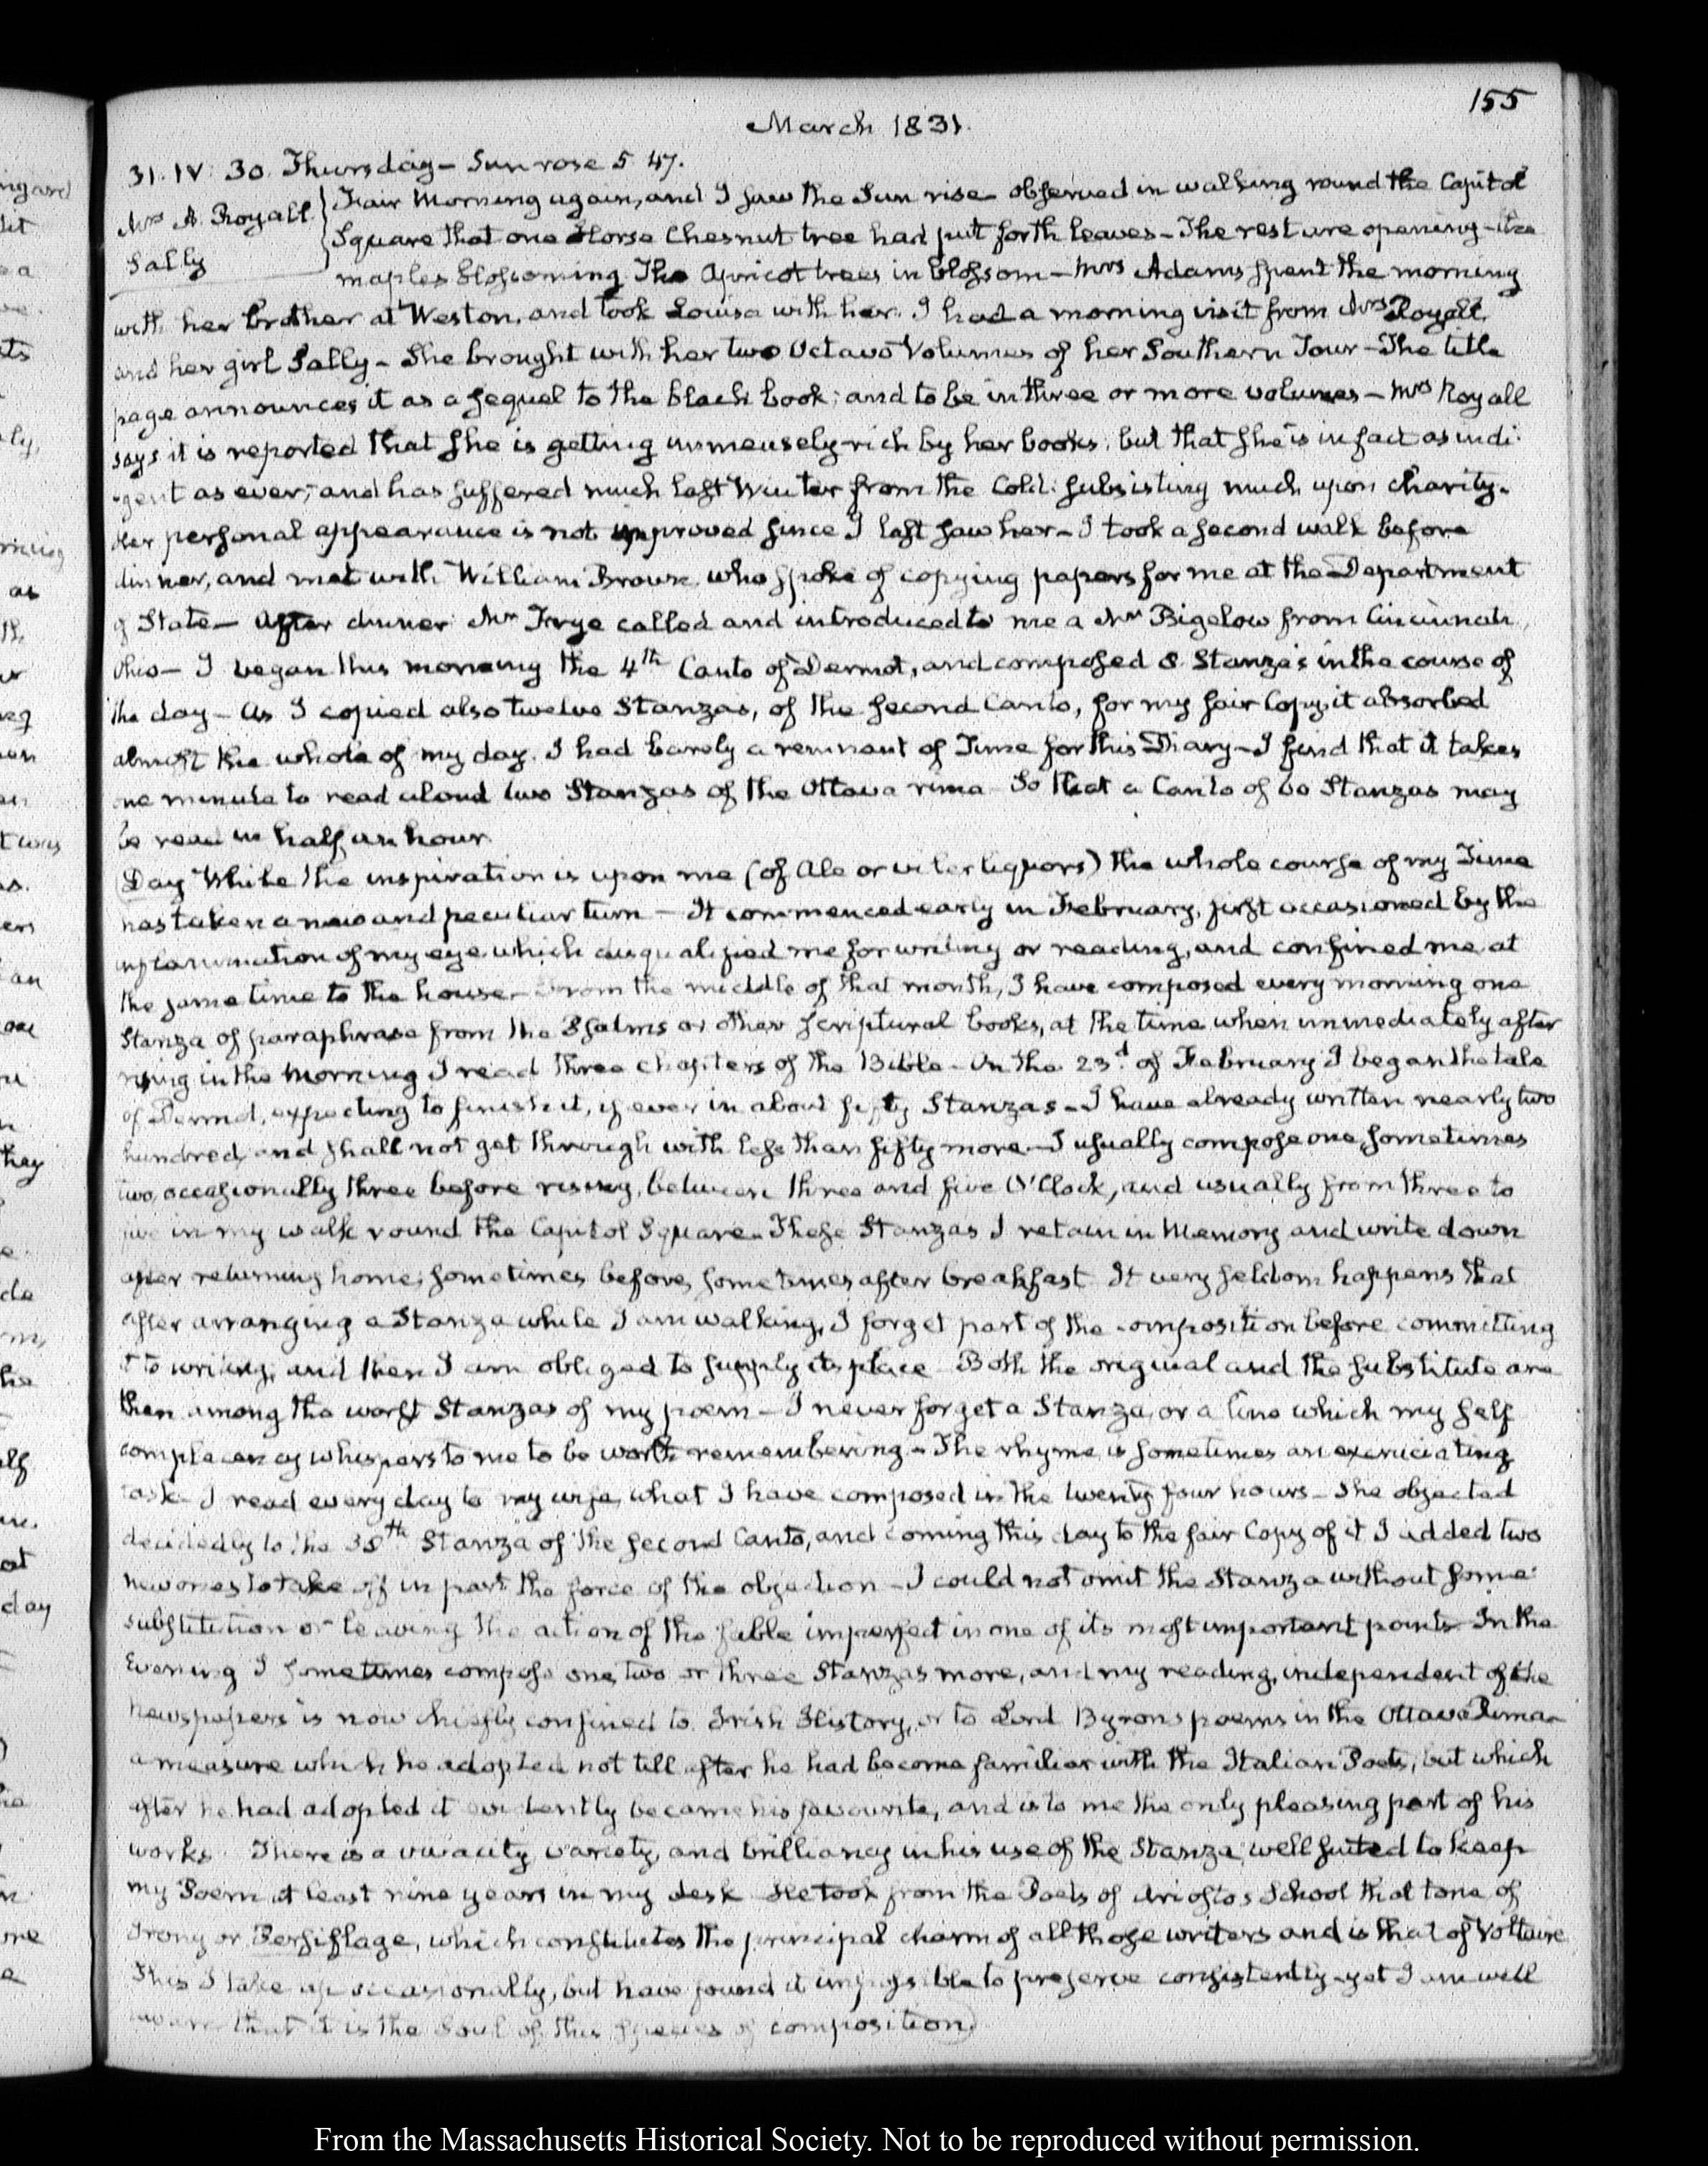 155
March 1831.
31. IV: 30. Thursday — Sun rose 5. 47.
Mrs A. Royall.
Sally
Fair Morning again, and I saw the Sun rise — observed in walking round the Capitol
Square that one Horse Chesnut tree had put forth leaves — The rest are opening — the
maples blossoming. The Apricot trees in blossom — Mrs Adams spent the morning
with her brother at Weston, and took Louisa with her. I had a morning visit from Mrs Royall,
and her girl Sally — She brought with her two Octavo Volumes of her Southern Tour — The title
page announces it as a sequel to the black book; and to be in three or more volumes — Mrs Royall
says it is reported that she is getting immensely rich by her books; but that she is in fact as indi-
-gent as ever; and has suffered much last Winter from the Cold: subsisting much upon charity.
Her personal appearance is not improved since I last saw her — I took a second walk before
dinner, and met with William Brown who spoke of copying papers for me at the Department
of State — After dinner Mr Frye called and introduced to me a Mr Bigelow from Cincinnati,
Ohio — I began this morning the 4th Canto of Dermot, and composed 8 Stanza's in the course of
the day — As I copied also twelve Stanzas, of the second Canto, for my fair Copy, it absorbed
almost the whole of my day. I had barely a remnant of Time for this Diary — I find that it takes
one minute to read aloud two Stanzas of the Ottava rima. So that a Canto of 60 Stanzas may
be read in half an hour.
Day While the inspiration is upon me (of Ale or viler liquors) the whole course of my Time
has taken a new and peculiar turn — It commenced early in February, first occasioned by the
inflammation of my eye which disqualified me for writing or reading, and confined me at
the same time to the house — From the middle of that month, I have composed every morning one
Stanza of paraphrase from the Psalms or other scriptural books, at the time when immediately after
rising in the morning I read three chapters of the Bible — On the 23d of February I began the tale
of Dermot, expecting to finish it, if ever in about fifty Stanzas — I have already written nearly two
hundred, and shall not get through with less than fifty more — I usually compose one, sometimes
two, occasionally three before rising, between three and five O'Clock, and usually from three to
five in my walk round the Capitol Square — These Stanzas I retain in Memory and write down
after returning home; sometimes before, sometimes after breakfast. It very seldom happens that
after arranging a Stanza while I am walking, I forget part of the composition before committing
it to writing, and then I am obliged to supply its place. Both the original and the substitute are
then among the worst Stanzas of my poem — I never forget a Stanza, or a line which my self
complacency whispers to me to be worth remembering — The rhyme is sometimes an excruciating
task — I read every day to my wife, what I have composed in the twenty four hours — She objected
decidedly to the 38th Stanza of the second Canto, and coming this day to the fair Copy of it I added two
new ones to take off in part the force of the objection — I could not omit the Stanza without some
substitution or leaving the action of the fable imperfect in one of its most important points. In the
Evening I sometimes compose one, two or three Stanzas more, and my reading, independent of the
newspapers is now chiefly confined to Irish History, or to Lord Byron's poems in the Ottava Rima —
a measure which he adopted not till after he had become familiar with the Italian Poets, but which
after he had adopted it evidently became his favourite, and is to me the only pleasing part of his
works. There is a vivacity, variety, and brilliancy in his use of the Stanza, well suited to keep
my Poem at least nine years in my desk. He took from the Poets of Ariosto's School that tone of
Irony or Persiflage, which constitutes the principal charm of all those writers and is that of Voltaire
This I take up occasionally, but have found it impossible to preserve consistently — yet I am well
aware that it is the Soul of this species of composition)
From the Massachusetts Historical Society. Not to be reproduced without permission.